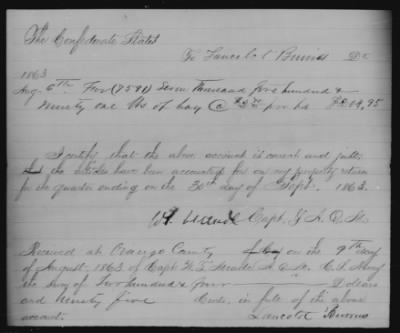 The Confederate States
To Lancelot Burrus Dr
1863
Aug. 6th For (7591) Seven Thousand five hundred &
ninety one lbs of hay @ pr hd $204,95
I certify that the above account is correct and just;
have been accounted for on my property return
for the quarter ending on the 30th day of Sept. 1863.
Capt. & A. Q. M.
Received at Orange County on the 9th day
of August 1863 of Capt A. Q. M. C. S. Army
the Sum of Two hundred & four Dollars
and Ninety five Cents, in full of the above
account. Lancelot Burrus